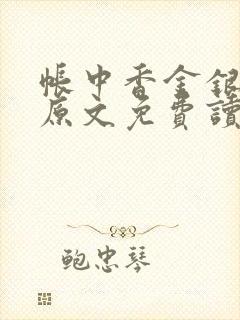 帳中香金銀
原文免費讀
鮑忠琴